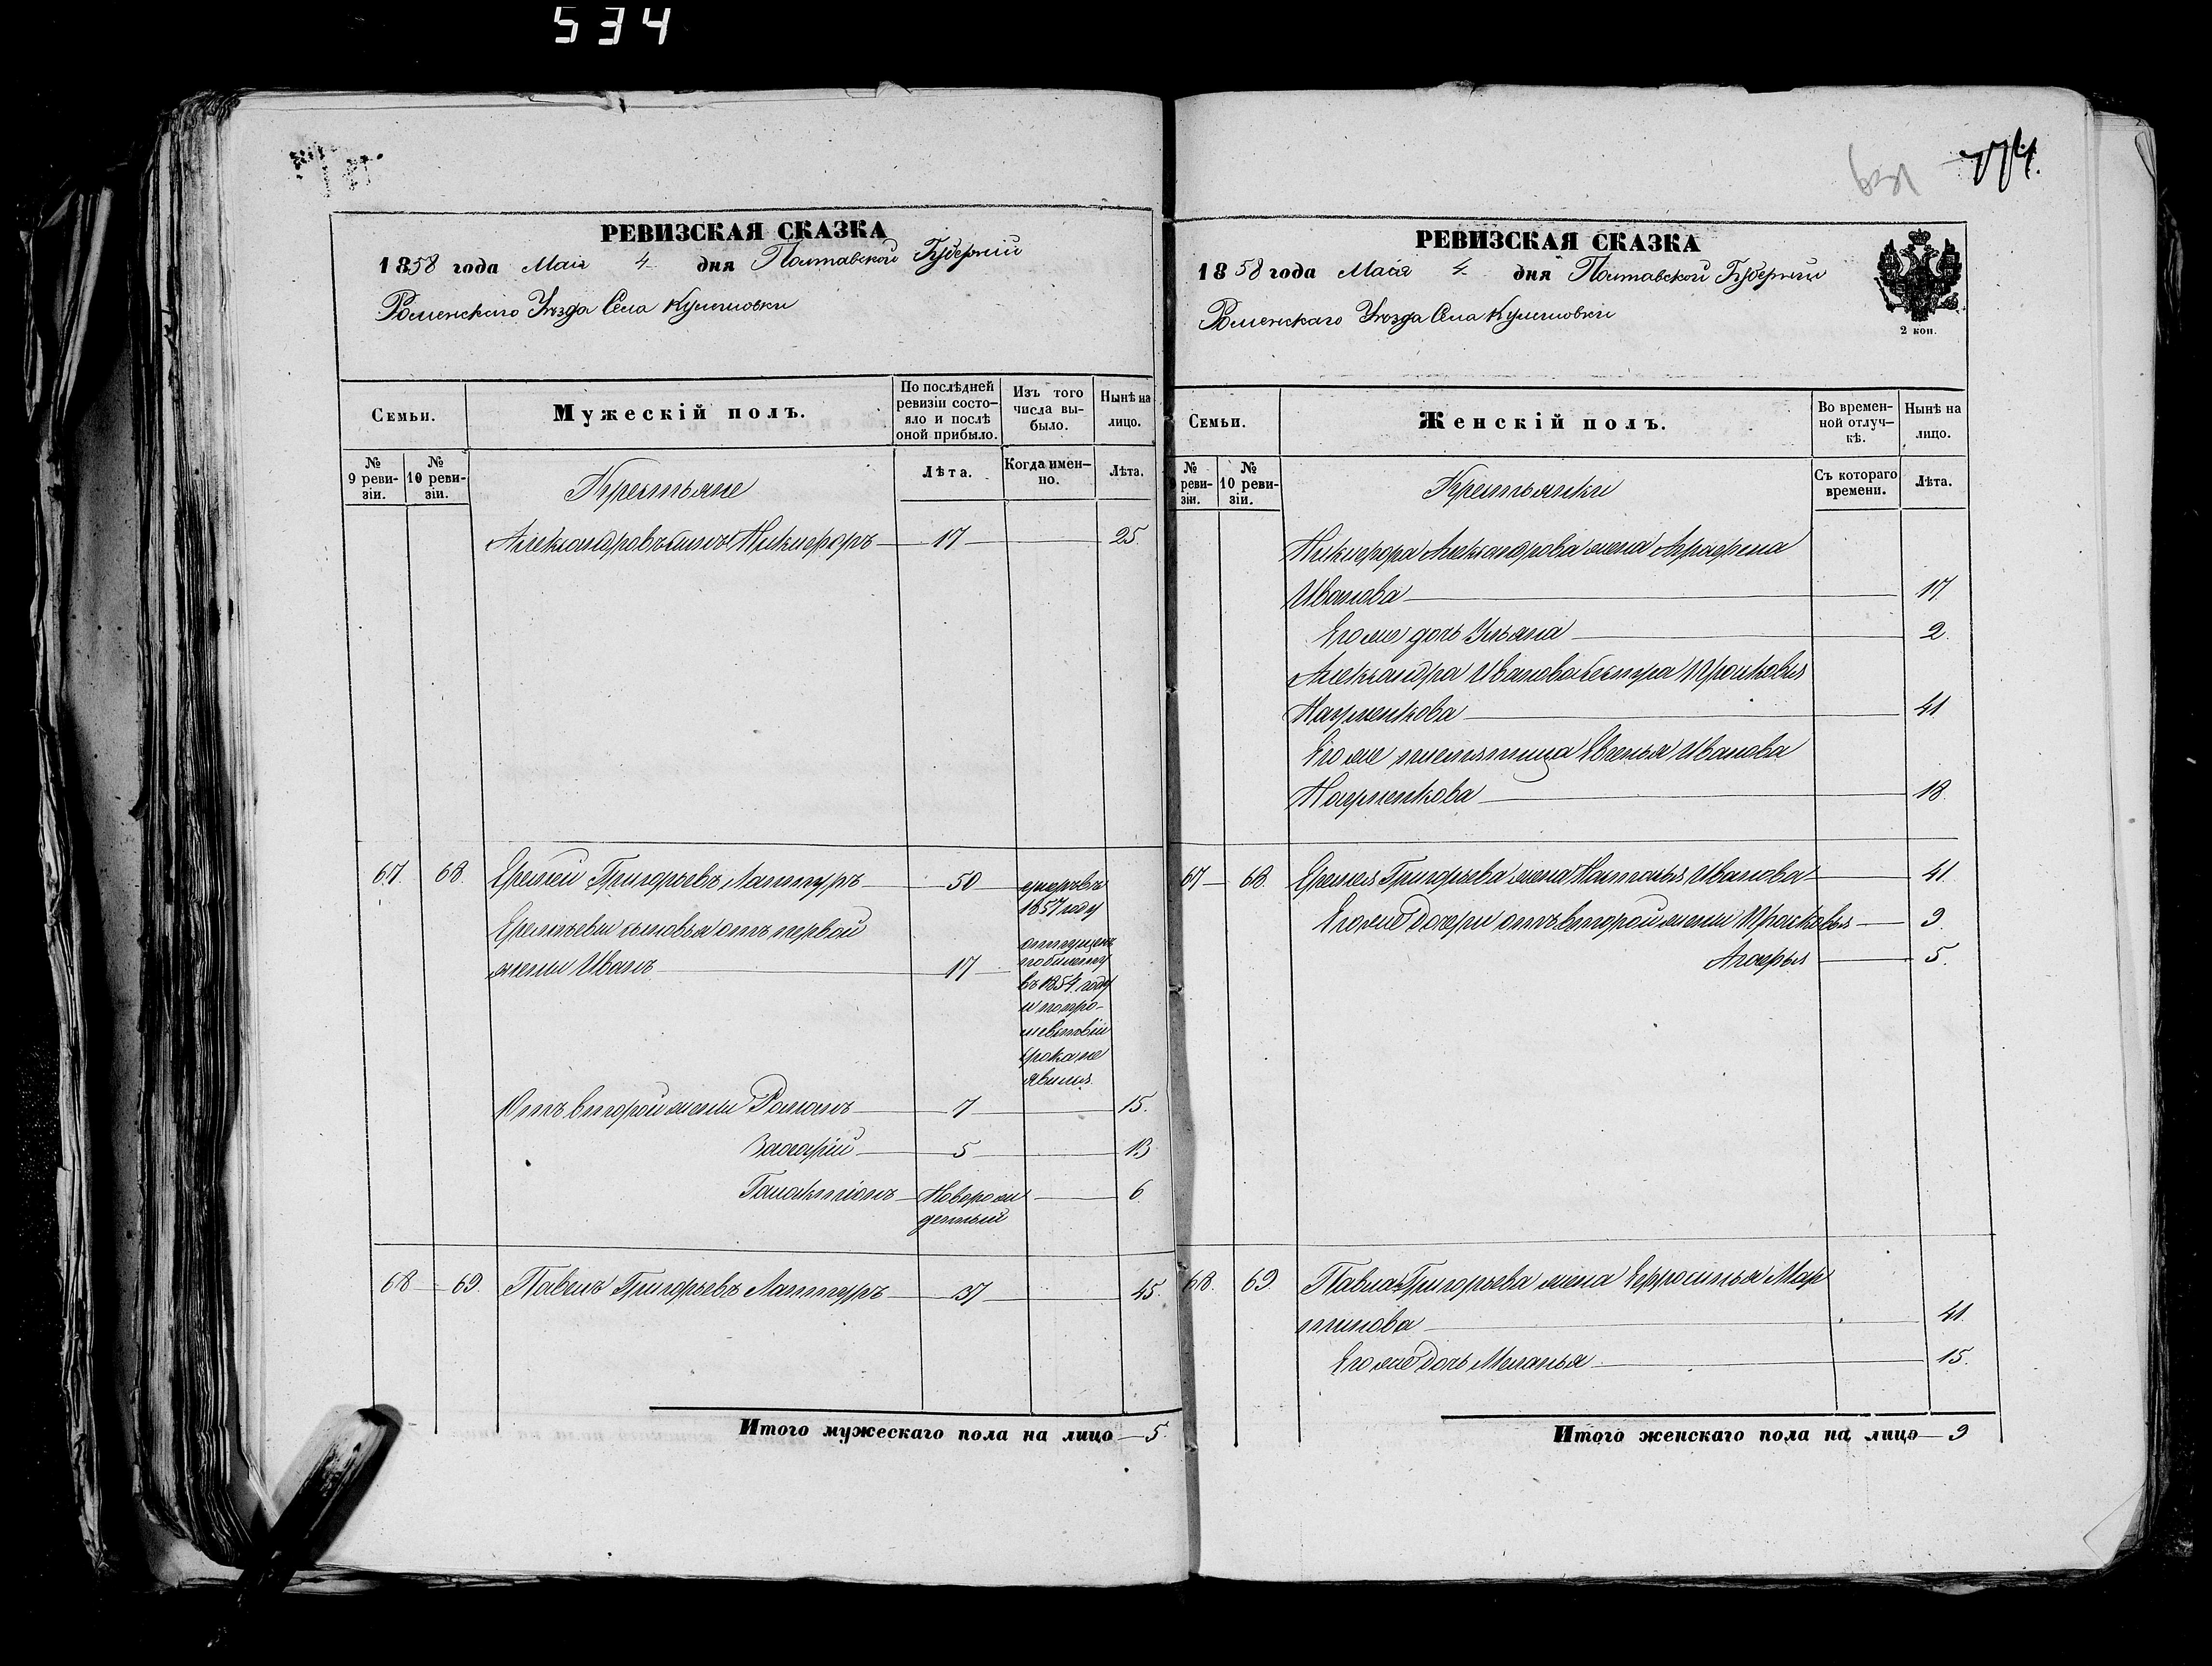 534
РЕВИЗСКАЯ СКАЗКА
1858 года Мая 4 дня Полтавской Губернии
Роменскаго Уезда Села Кулишовки
Семьи.
Мужескій полъ.
По послѣдней ревизіи состо-яло и послѣ оной прибыло.
Изъ того числа вы-было.
Нынѣ на лицо.
№ 9 реви-зіи.
№ 10 реви-зіи.
Крестьяне
Лѣта.
Когда имен-но.
Лѣта.
Александровъ сынъ Никифоръ 17 25.
67. 68. Еремей Григорьевъ Лаптуръ 50 умеръ въ
1857 году
Еремѣевы сыновья отъ первой
жены Иванъ 17
отпущенъ
по билету
въ 1854 году
и по про-
шествіи
срока не
явился.
Отъ второй жены Романъ 7 15.
Захарій 5 13
Галактіонъ Новорож 6
денный
68 69. Павелъ Григорьевъ Лаптуръ 37 45.
Итого мужескаго пола на лицо 5.
174.
РЕВИЗСКАЯ СКАЗКА
1858 года Мая 4 дня Полтавской Губернии
Роменскаго Уезда Села Кулишовки
2 коп.
Семьи.
Женскій полъ.
Во времен-ной отлуч-кѣ.
Нынѣ на лицо.
№ реви-зіи.
№ 10 реви-зіи.
Крестьянки
Съ котораго времени.
Лѣта.
Никифора Александрова жена Аграфена
Иванова 17
Его же дочь Ульяна 2.
Александра Иванова сестра Прасковья
Науменкова 41
Его же племянница Евгенья Иванова
Науменкова 18.
67 68. Еремея Григорьева жена Наталья Иванова 41.
Его же дочери отъ второй жены Прасковья 9.
Агафья 5.
68. 69. Павла Григорьева жена Ефросинья Мар
тинова 41.
Его же дочь Меланья 15.
Итого женскаго пола на лицо 9